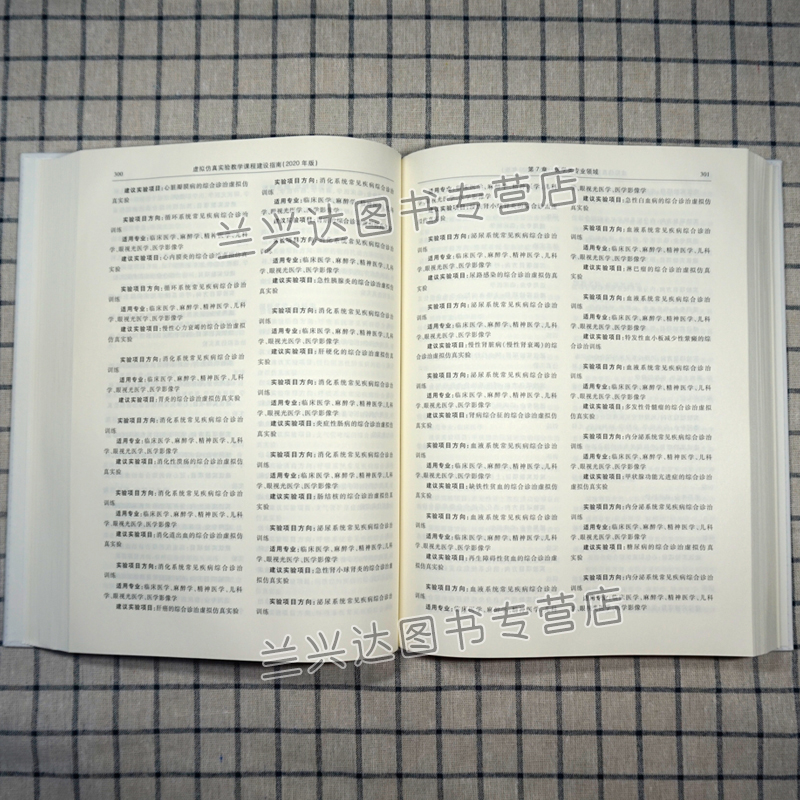 300 虚拟仿真实验教学课程建设指南(2020年版)
建议实验项目:心脏瓣膜病的综合诊治虚拟仿
真实验
实验项目方向:循环系统常见疾病综合诊治
训练
适用专业:临床医学、麻醉学、精神医学、儿科
学、眼视光医学、医学影像学
建议实验项目:心肌病的综合诊治虚拟仿真实验
实验项目方向:循环系统常见疾病综合诊治
训练
适用专业:临床医学、麻醉学、精神医学、儿科
学、眼视光医学、医学影像学
建议实验项目:慢性心力衰竭的综合诊治虚拟
仿真实验
实验项目方向:消化系统常见疾病综合诊治
训练
适用专业:临床医学、麻醉学、精神医学、儿科
学、眼视光医学、医学影像学
建议实验项目:胃炎的综合诊治虚拟仿真实验
实验项目方向:消化系统常见疾病综合诊治
训练
适用专业:临床医学、麻醉学、精神医学、儿科
学、眼视光医学、医学影像学
建议实验项目:消化性溃疡的综合诊治虚拟仿
真实验
实验项目方向:消化系统常见疾病综合诊治
训练
适用专业:临床医学、麻醉学、精神医学、儿科
学、眼视光医学、医学影像学
建议实验项目:消化道出血的综合诊治虚拟仿
真实验
实验项目方向:消化系统常见疾病综合诊治
训练
适用专业:临床医学、麻醉学、精神医学、儿科
学、眼视光医学、医学影像学
建议实验项目:肝癌的综合诊治虚拟仿真实验
实验项目方向:消化系统常见疾病综合诊治
训练
适用专业:临床医学、麻醉学、精神医学、儿科
学、眼视光医学、医学影像学
实验项目方向:消化系统常见疾病综合诊治
训练
适用专业:临床医学、麻醉学、精神医学、儿科
学、眼视光医学、医学影像学
建议实验项目:急性胰腺炎的综合诊治虚拟仿
真实验
实验项目方向:消化系统常见疾病综合诊治
训练
适用专业:临床医学、麻醉学、精神医学、儿科
学、眼视光医学、医学影像学
建议实验项目:肝硬化的综合诊治虚拟仿真实
验
实验项目方向:消化系统常见疾病综合诊治
训练
适用专业:临床医学、麻醉学、精神医学、儿科
学、眼视光医学、医学影像学
建议实验项目:炎症性肠病的综合诊治虚拟仿
真实验
实验项目方向:消化系统常见疾病综合诊治
训练
适用专业:临床医学、麻醉学、精神医学、儿科
学、眼视光医学、医学影像学
建议实验项目:肠结核的综合诊治虚拟仿真实
验
实验项目方向:泌尿系统常见疾病综合诊治
训练
适用专业:临床医学、麻醉学、精神医学、儿科
学、眼视光医学、医学影像学
建议实验项目:急性肾小球肾炎的综合诊治虚
拟仿真实验
实验项目方向:泌尿系统常见疾病综合诊治
训练
第7章 专业领域 301
适用专业:临床医学、麻醉学、精神医学、儿科
学、眼视光医学、医学影像学
实验项目方向:泌尿系统常见疾病综合诊治
训练
适用专业:临床医学、麻醉学、精神医学、儿
科学、眼视光医学、医学影像学
建议实验项目:尿路感染的综合诊治虚拟仿真
实验
实验项目方向:泌尿系统常见疾病综合诊治
训练
适用专业:临床医学、麻醉学、精神医学、儿
科学、眼视光医学、医学影像学
建议实验项目:慢性肾脏病(慢性肾衰竭)的综
合诊治虚拟仿真实验
实验项目方向:泌尿系统常见疾病综合诊治
训练
适用专业:临床医学、麻醉学、精神医学、儿
科学、眼视光医学、医学影像学
建议实验项目:肾病综合征的综合诊治虚拟仿
真实验
实验项目方向:血液系统常见疾病综合诊治
训练
适用专业:临床医学、麻醉学、精神医学、儿
科学、眼视光医学、医学影像学
建议实验项目:缺铁性贫血的综合诊治虚拟仿
真实验
实验项目方向:血液系统常见疾病综合诊治
训练
适用专业:临床医学、麻醉学、精神医学、儿
科学、眼视光医学、医学影像学
建议实验项目:再生障碍性贫血的综合诊治虚
拟仿真实验
实验项目方向:血液系统常见疾病综合诊治
训练
适用专业:临床医学、麻醉学、精神医学、儿科
学、眼视光医学、医学影像学
建议实验项目:急性白血病的综合诊治虚拟仿
真实验
实验项目方向:血液系统常见疾病综合诊治
训练
适用专业:临床医学、麻醉学、精神医学、儿科
学、眼视光医学、医学影像学
建议实验项目:淋巴瘤的综合诊治虚拟仿真实
验
实验项目方向:血液系统常见疾病综合诊治
训练
适用专业:临床医学、麻醉学、精神医学、儿科
学、眼视光医学、医学影像学
建议实验项目:特发性血小板减少性紫癜的综
合诊治训练
实验项目方向:血液系统常见疾病综合诊治
训练
适用专业:临床医学、麻醉学、精神医学、儿科
学、眼视光医学、医学影像学
建议实验项目:多发性骨髓瘤的综合诊治虚拟
仿真实验
实验项目方向:内分泌系统常见疾病综合诊治
训练
适用专业:临床医学、麻醉学、精神医学、儿科
学、眼视光医学、医学影像学
建议实验项目:甲状腺功能亢进症的综合诊治
虚拟仿真实验
实验项目方向:内分泌系统常见疾病综合诊治
训练
适用专业:临床医学、麻醉学、精神医学、儿科
学、眼视光医学、医学影像学
建议实验项目:糖尿病的综合诊治虚拟仿真实
验
实验项目方向:内分泌系统常见疾病综合诊治
训练
适用专业:临床医学、麻醉学、精神医学、儿科
学、眼视光医学、医学影像学
兰兴达图书专营店
兰兴达图书专营店